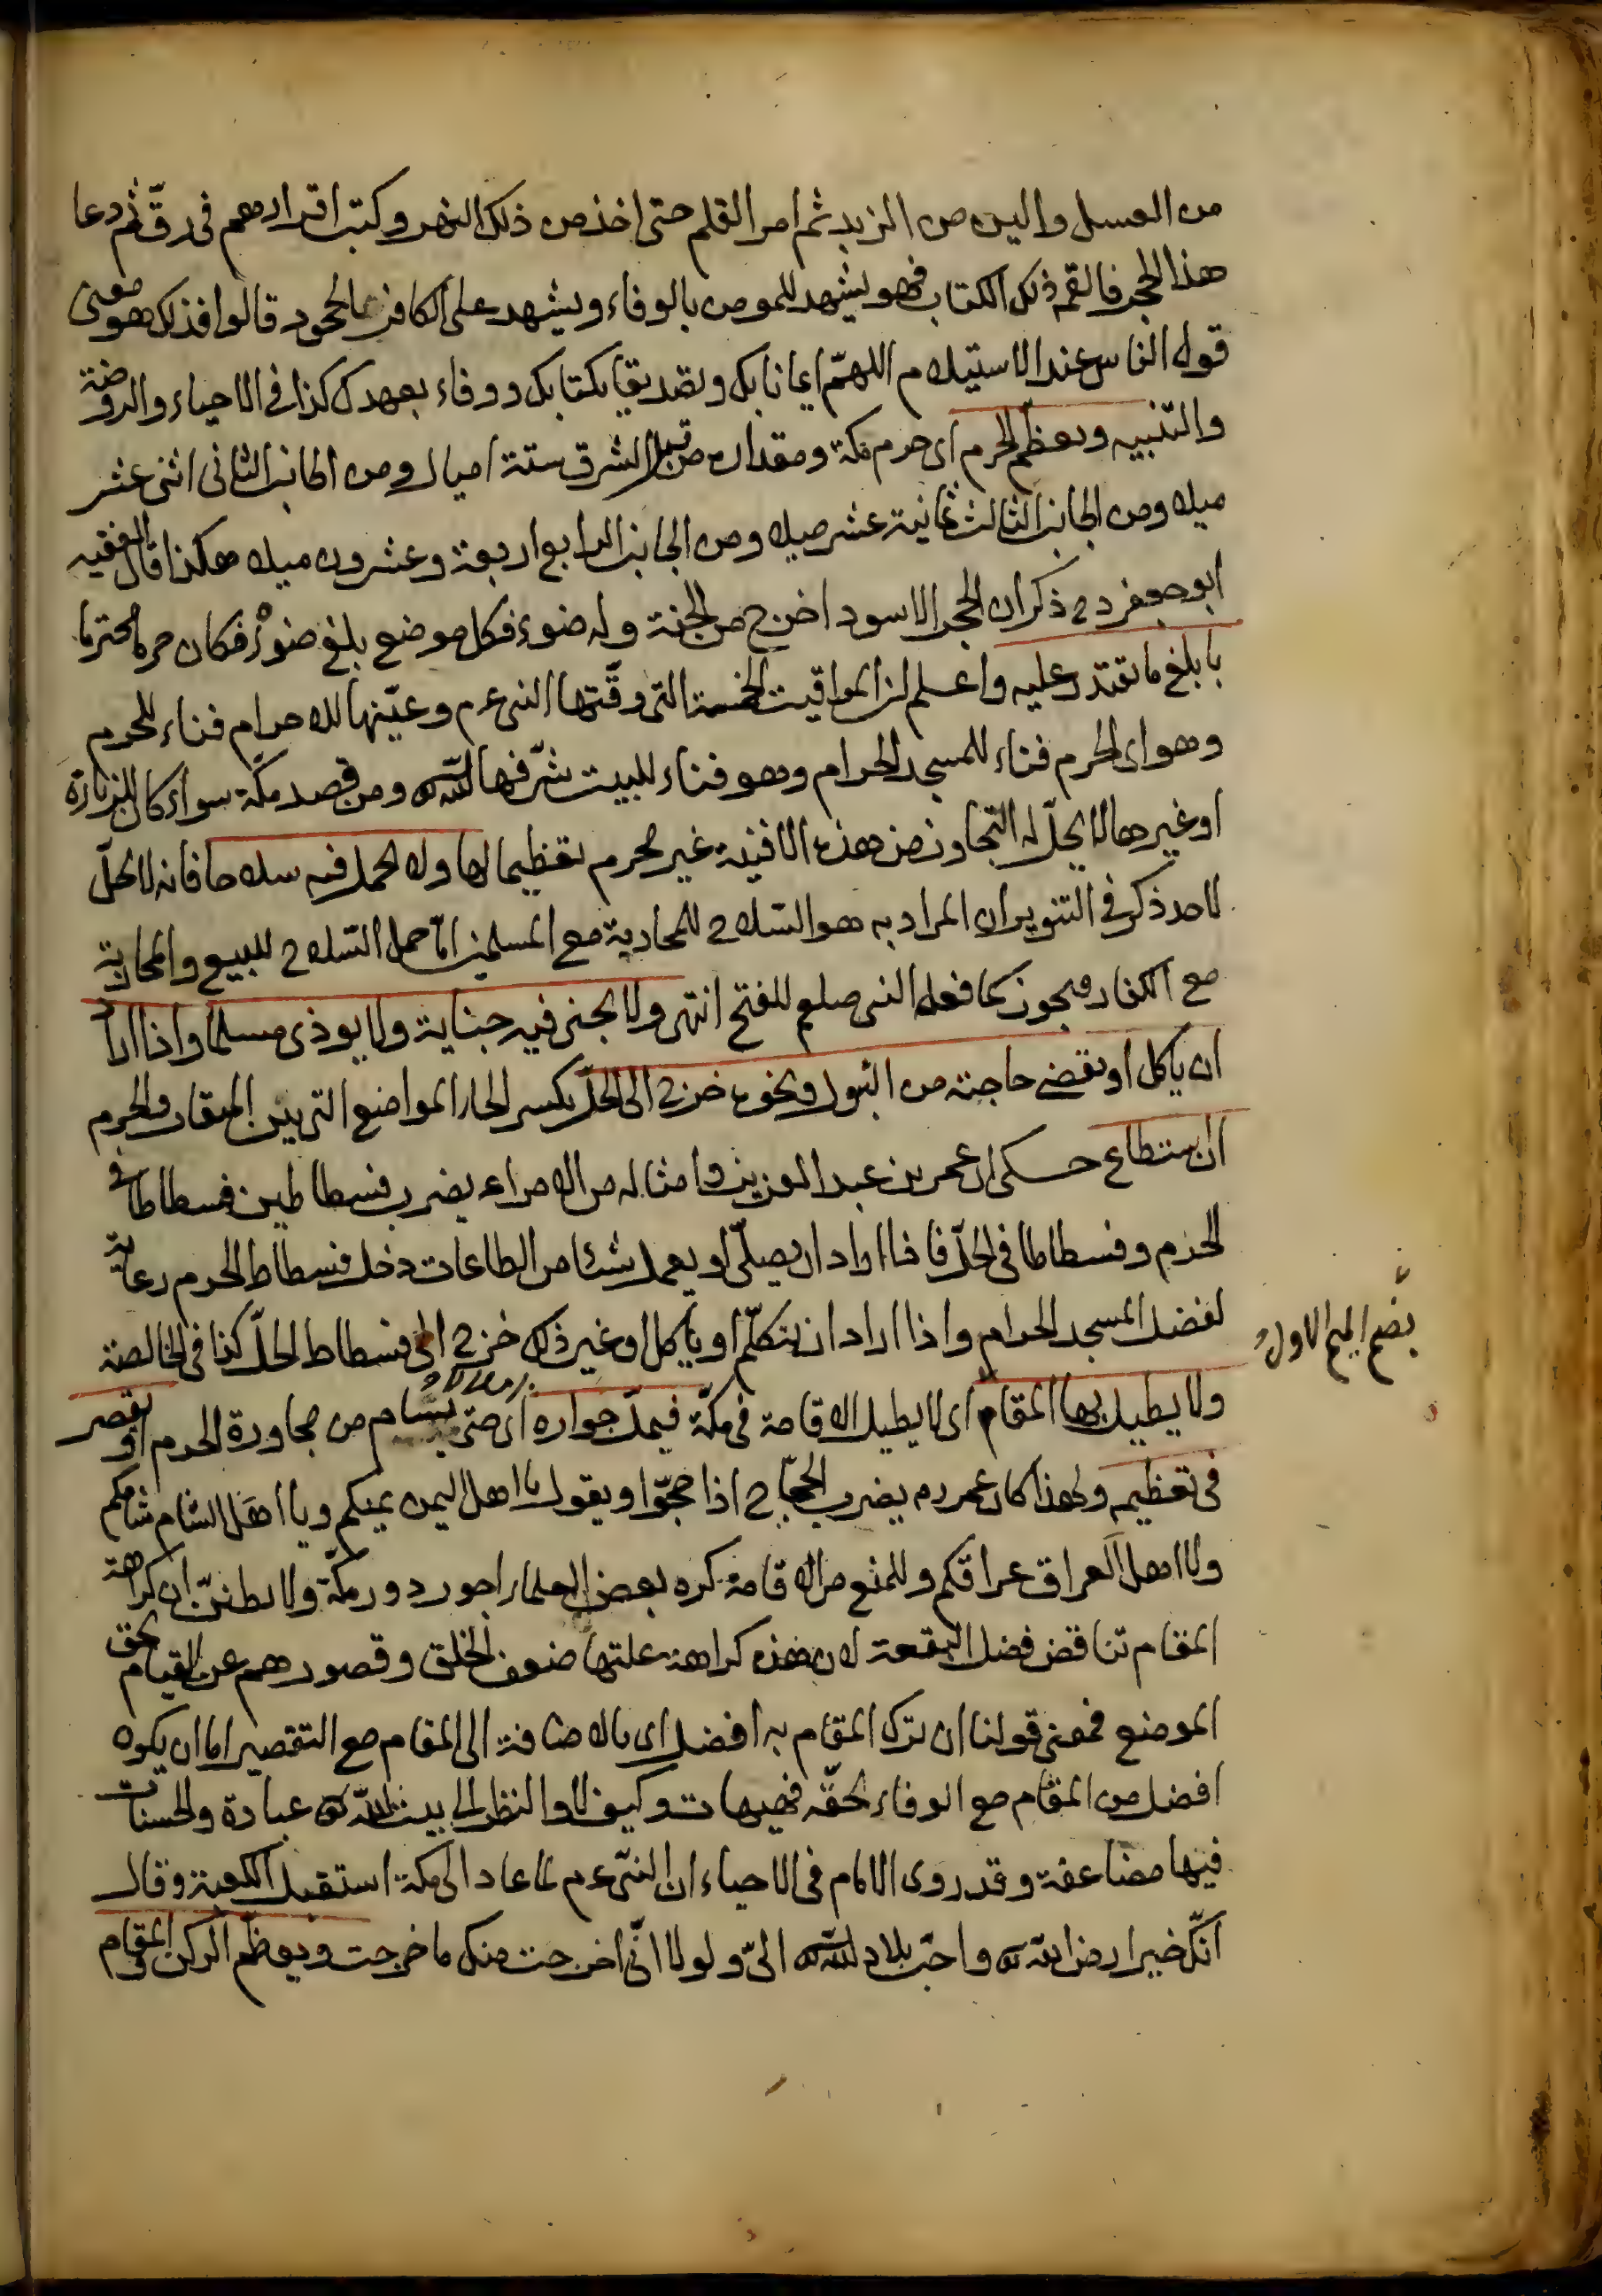 من العسل والين من الزبد ثم امر القلم حتى اخذ من ذلك النهر وكتب اقرارهم فى رقّ ثم دعا
هذا الحجر فالقمه ذلك الكتاب فهو يشهد للمومن بالوفاء ويشهد على الكافر بالجحود قالوا فذلك هو معنى
قول الناس عند الاستيلام اللهمّ ايمانا بك وتصديقا بكتابك ووفاء بعهدك كذا فى الاحياء والروضة
والتنبيه ويعظم الحرم اى حرم مكة ومقداره من قبل الشرق ستة اميال ومن الجانب الثانى اثنى عشر
ميلا ومن الجانب الثالث ثمانية عشر ميلا ومن الجانب الرابع اربعة وعشرون ميلا هكذا قال الفقيه
ابو جعفر رح ذكر ان الحجر الاسود اخرج من الجنة وله ضوء فكل موضع بلغ ضوؤه فكان حرما محترما
بابلغ ما يقتدر عليه واعلم ان المواقيت الخمسة التى وقّتها النبى ءم وعيّنها للاحرام فناء للحرم
وهو اى الحرم فناء للمسجد الحرام وهو فناء للبيت شرّفها الله ومن قصد مكّة سواء كان للزيارة
او غيرها لا يحلّ له التجاوز من هذه الافنية غير محرم تعظيما لها ولا يحمل فيه سلاحا فانه لا يحلّ
لاحد ذكر فى التنوير ان المراد به هو السلاح للمحاربة مع المسلمين امّا حمل السلاح للبيع والمحاربة
مع الكفار فيجوز كما فعله النبى صلعم للفتح انتهى ولا يجنى فيه جناية ولا يوذى مسلما واذا اراد
ان ياكل او يقضى حاجته من البول ونحوه خرج الى الحلّ بكسر الحاء المواضع التى بين الميقات والحرم
ان استطاع حكى ان عمر بن عبد العزيز وامثاله من الامراء يضرب فسطاطين فسطاطا فى
الحرم وفسطاطا فى الحلّ فاذا اراد ان يصلّى او يعمل شيئا من الطاعات دخل فسطاط الحرم رعاية
لفضل المسجد الحرام واذا اراد ان يتكلّم او ياكل او غير ذلك خرج الى فسطاط الحلّ كذا فى الخالصة
بضم الميم الاول
ولا يطيل بها المقام اى لا يطيل الاقامة فى مكّة فيملّ جواره اى حتى يسام من مجاورة الحرم او يقصر
فى تعظيمه ولهذا كان عمر رم يضرب الحجاج اذا حجّوا ويقول يا اهل اليمن يمنكم ويا اهل الشام شامكم
ويا اهل العراق عراقكم وللمنع من الاقامة كره بعض العلماء اجور دور مكّة ولا يظنّنّ ان كراهة
المقام تناقض فضل البقعة لان هذه كراهة علتها ضعف الخلق وقصورهم عن القيام بحق
الموضع فمعنى قولنا ان ترك المقام به افضل اى بالاضافة الى المقام مع التقصير اما ان يكون
افضل من المقام مع الوفاء بحقّه فهيهات وكيف لا والنظر الى بيت الله عبادة والحسنات
فيها مضاعفة وقد روى الامام فى الاحياء ان النبى ءم لما عاد الى مكة استقبل الكعبة وقال
انّك خير ارض الله واحبّ بلاد الله الىّ ولولا انّى اخرجت منك ما خرجت ويعظّم الركن والمقام